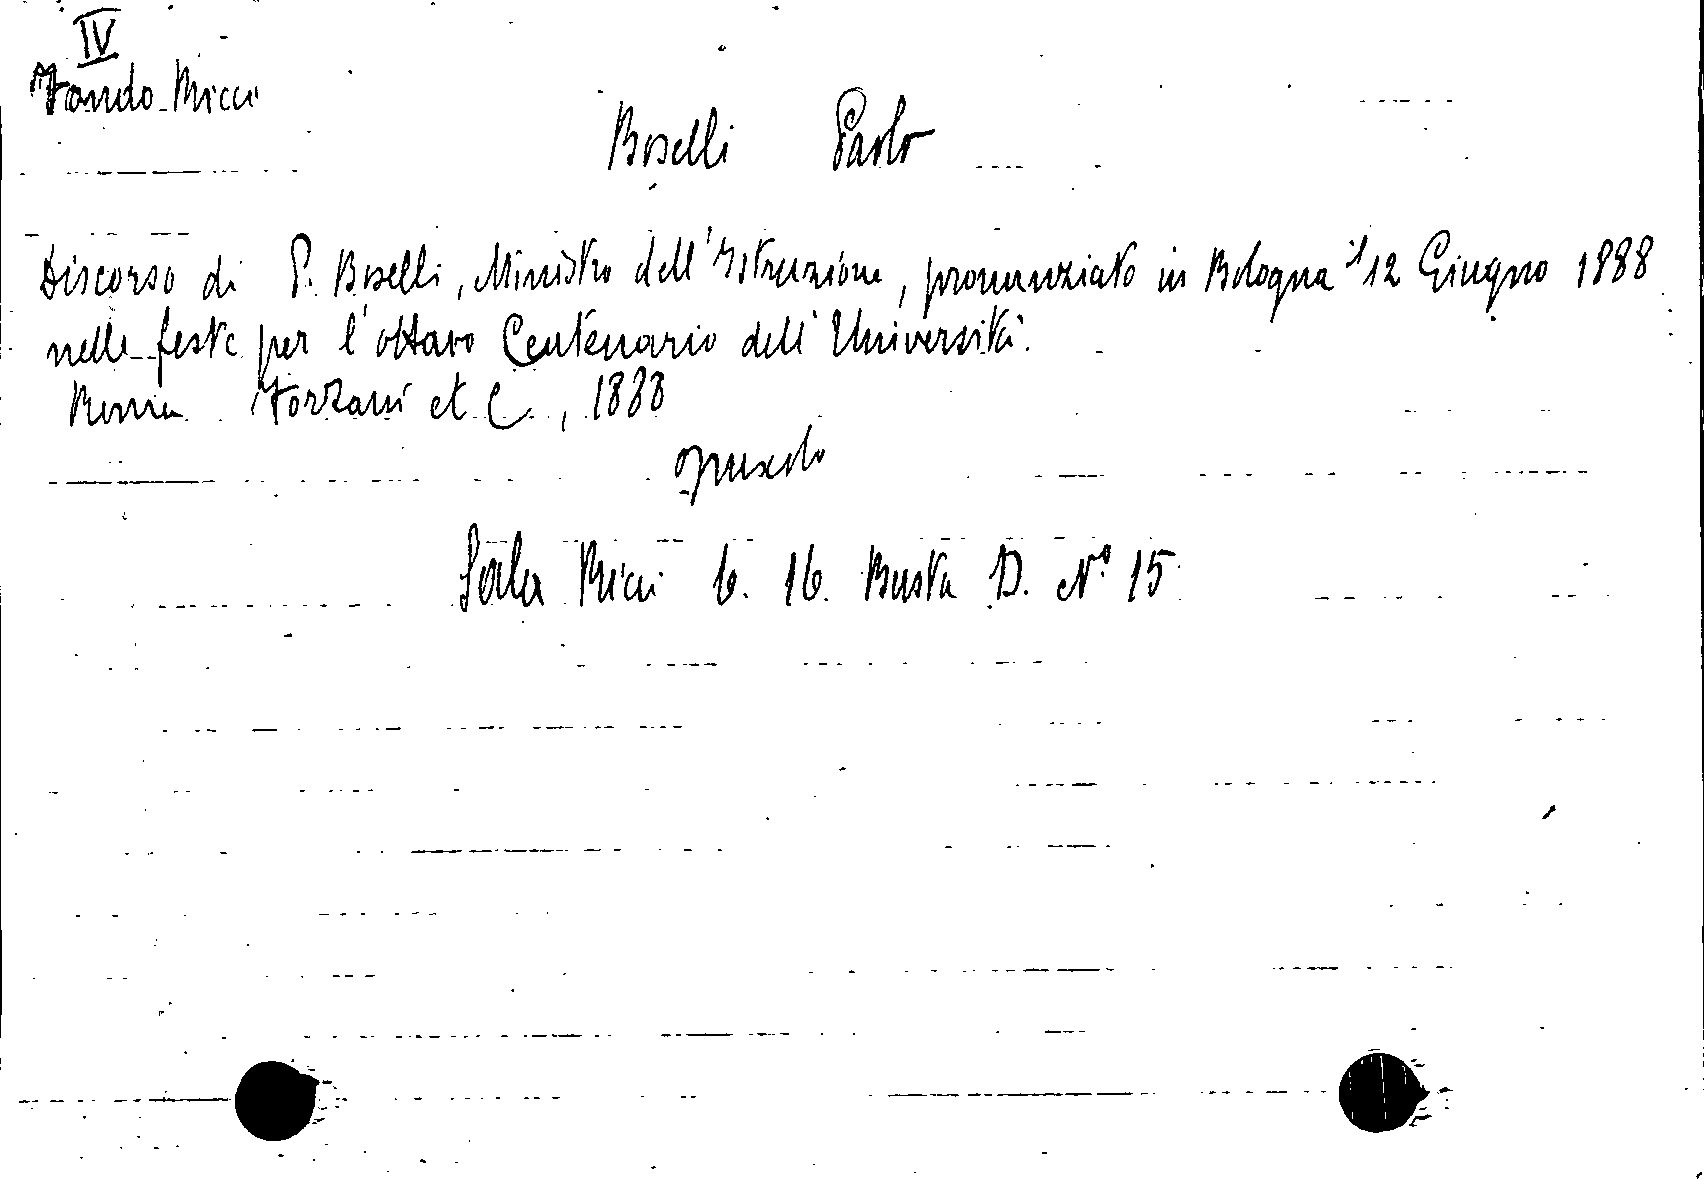 IV
Fondo Ricci
Boselli Paolo
Discorso di P. Boselli, Ministro dell'Istruzione, pronunziato in Bologna il 12 Giugno 1888
nelle feste per l'ottavo Centenario dell'Università.
Roma Forzani et C., 1888
opuscolo
Sala Ricci 6. 16. Busta D. N° 15